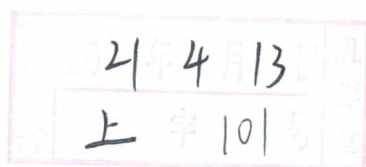 21年4月13
上字101号